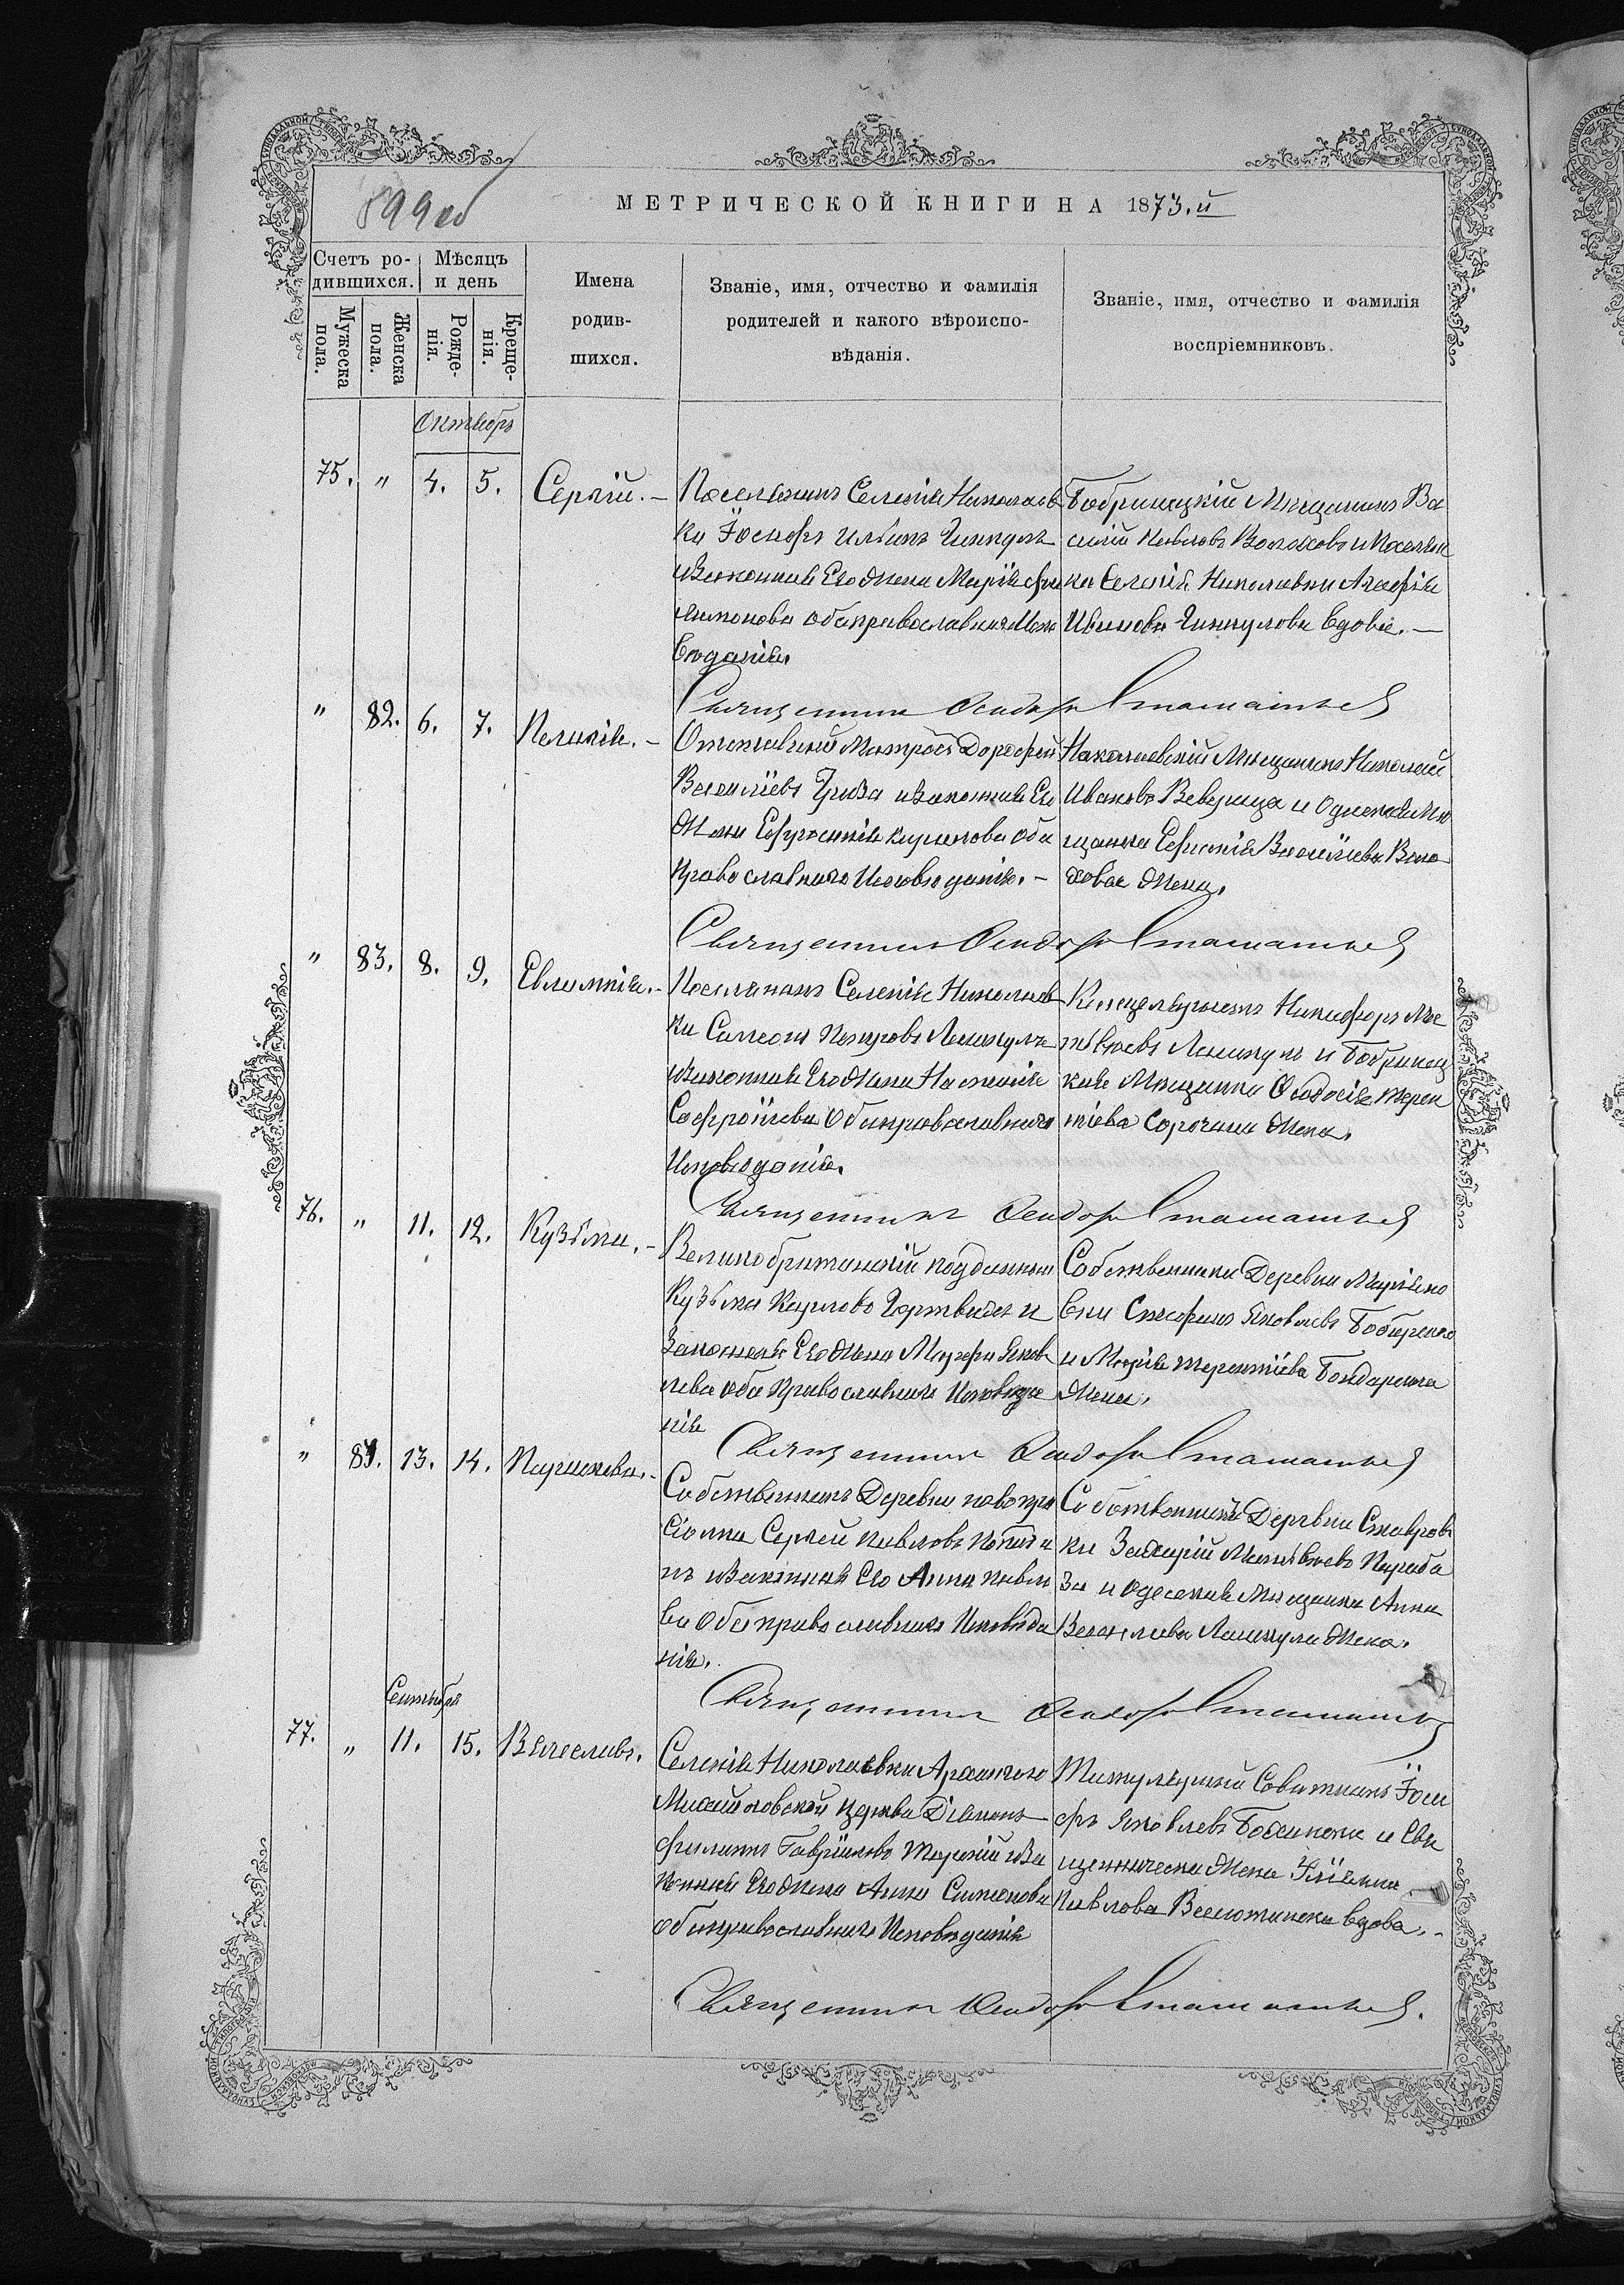 899 об
МЕТРИЧЕСКОЙ КНИГИ НА 1873.й
Счетъ ро-
дившихся.
Мѣсяцъ
и день
Мужеска
пола.
Женска
пола.
Рожде-
нія.
Креще-
нія.
Имена
родив-
шихся.
Званіе, имя, отчество и фамилія
родителей и какого вѣроиспо-
вѣданія.
Званіе, имя, отчество и фамилія
воспріемниковъ.
Октябрь
75. " 4. 5. Сергій. –
Поселянинъ Селенія Николаев
ки Іосифъ Ильинъ
и Законная Его Жена Марія Фи
лимонова оба православнаго Испо
вѣданія.
Бобринецкій Мѣщанинъ Ва
силій Павловъ Волоховъ и Поселян
ка Селенія Николаевки Агафія
Иванова вдова. –
Священникъ Ѳеодоръ
" 82. 6. 7. Пелагія. –
Отставный Матросъ Дорофей
Васильевъ Гриза и Законная Его
Жена Ефросинія Кирилова оба
Православнаго Исповѣданія. –
Николаевскій Мѣщанинъ Николай
Ивановъ Веверица и Одесская Мѣ
щанка Евфимія Васильева Воло
хова Жена.
Священникъ Ѳеодоръ
" 83. 8. 9. Евлампія. –
Поселянинъ Селенія Николаев
ки Симеонъ Петровъ
и Законная Его Жена Настасія
Софроніева Оба православнаго
Исповѣданія.
Канцеляристъ Никифоръ Мат
вѣевъ и Бобринец
кая Мѣщанка Ѳеодосія Терен
тіева Сорочана Жена.
Священникъ Ѳеодоръ
76. " 11. 12. Кузьма. –
Великобританскій подданный
Кузьма Карловъ и
Законная Его Жена Марфа Яков
лева оба Православнаго Исповѣда
нія
Собственники Деревни Марьяно
вки Стефанъ Яковлевъ Бобиренко
и Марія Терентіева Бондаренка
Жена.
Священникъ Ѳеодоръ
" 84. 13. 14. Параскева. –
Собственникъ Деревни
Сергей Павловъ
и Законная Его Анна Павло
ва Оба православнаго Исповѣда
нія.
Собственникъ Деревни Ставров
ки Захарій Матвѣевъ Караба
за и Одесская Мѣщанка Анна
Васильева Жена.
Священникъ Ѳеодоръ
Сентябрь
77. " 11. 15. Вячеславъ.
Селенія Николаевки Архангело
Михайловской Церкви Діаконъ
Филиппъ Гавриловъ и За
конная Его Жена Анна Симеонова
оба православнаго Исповѣданія
Титулярный Совѣтникъ Іоси
фъ Яковлевъ и Свя
щенническа Жена Уліяния
Павлова вдова. –
Священникъ Ѳеодоръ